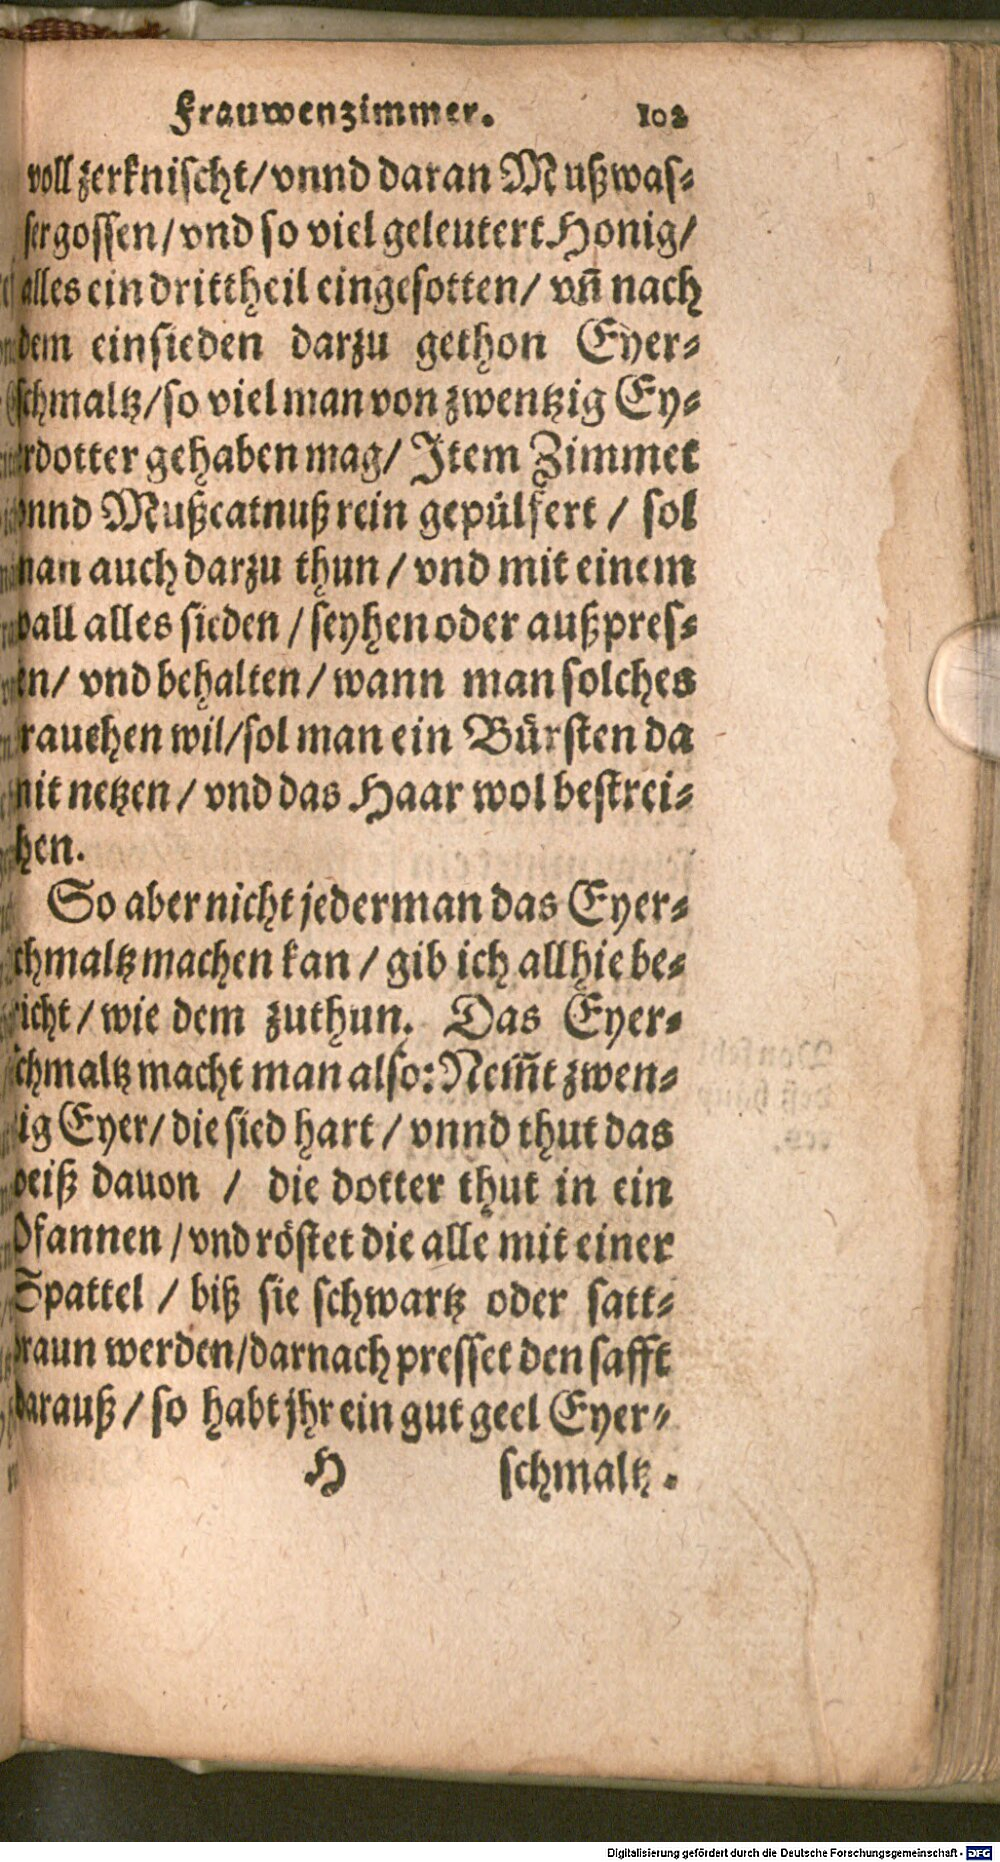 Frauwenzimmer. 102
voll zerknischt/ vnnd daran Mußwas-
ser gossen/ vnd so viel geleutert Honig/
alles ein drittheil eingesotten/ vñ nach
dem einsieden darzu gethon Eyer-
schmaltz/ so viel man von zwentzig Ey-
erdotter gehaben mag/ Item Zimmet
vnnd Mußcatnuß rein gepülfert / sol
man auch darzu thun / vnd mit einem
wall alles sieden / seyhen oder außpres-
sen/ vnd behalten / wann man solches
brauchen wil/ sol man ein Bürsten da
mit netzen / vnd das Haar wol bestrei-
chen.
So aber nicht jederman das Eyer-
schmaltz machen kan / gib ich allhie be-
richt / wie dem zuthun. Das Eyer-
schmaltz macht man also: Nemt̃ zwen-
tzig Eyer/ die sied hart / vnnd thut das
weiß dauon / die dotter thut in ein
Pfannen / vnd röstet die alle mit einer
Spattel / biß sie schwartz oder satt-
braun werden/ darnach presset den safft
darauß / so habt jhr ein gut geel Eyer-
H schmaltz.
Digitalisierung gefördert durch die Deutsche Forschungsgemeinschaft - DFG